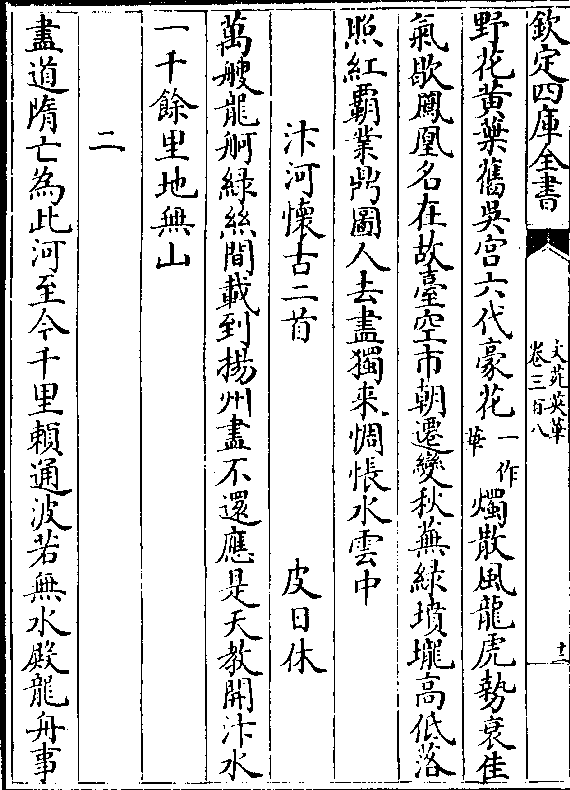 欽定四庫全書
文苑英華
卷三百八
十二
野花黄葉舊吳宮六代豪花一作華燭散風龍虎勢衰佳
氣歇鳳凰名在故臺空市朝遷變秋蕪緑墳壠高低落
照紅覇業鼎圖人去盡獨来惆悵水雲中
汴河懷古二首 皮日休
萬艘龍舸緑絲間載到揚州盡不還應是天教開汴水
一千餘里地無山
二
盡道隋亡為此河至今千里賴通波若無水殿龍舟事